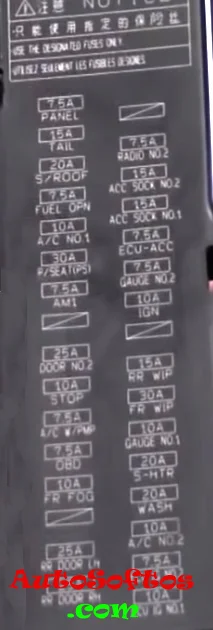 注意 NOTICE
·只能使用指定的保险丝
USE THE DESIGNATED FUSES ONLY.
UTILISEZ SEULEMENT LES FUSIBLES DESIGNES.
7.5A
PANEL
15A
TAIL
20A
S/ROOF
7.5A
FUEL OPN
10A
A/C NO.1
30A
P/SEAT(PS)
7.5A
AM1
25A
DOOR NO.2
10A
STOP
7.5A
A/C W/PMP
7.5A
OBD
10A
FR FOG
25A
RR DOOR
RR DOOR RH
7.5A
RADIO NO.2
15A
ACC SOCK NO.2
15A
ACC SOCK NO.1
7.5A
ECU-ACC
7.5A
GAUGE NO.2
10A
IGN
15A
RR WIP
30A
FR WIP
10A
GAUGE NO.1
20A
S-HTR
20A
WASH
10A
A/C NO.2
7.5A
10A
ECU IG NO.1
AutoSoftos
.com